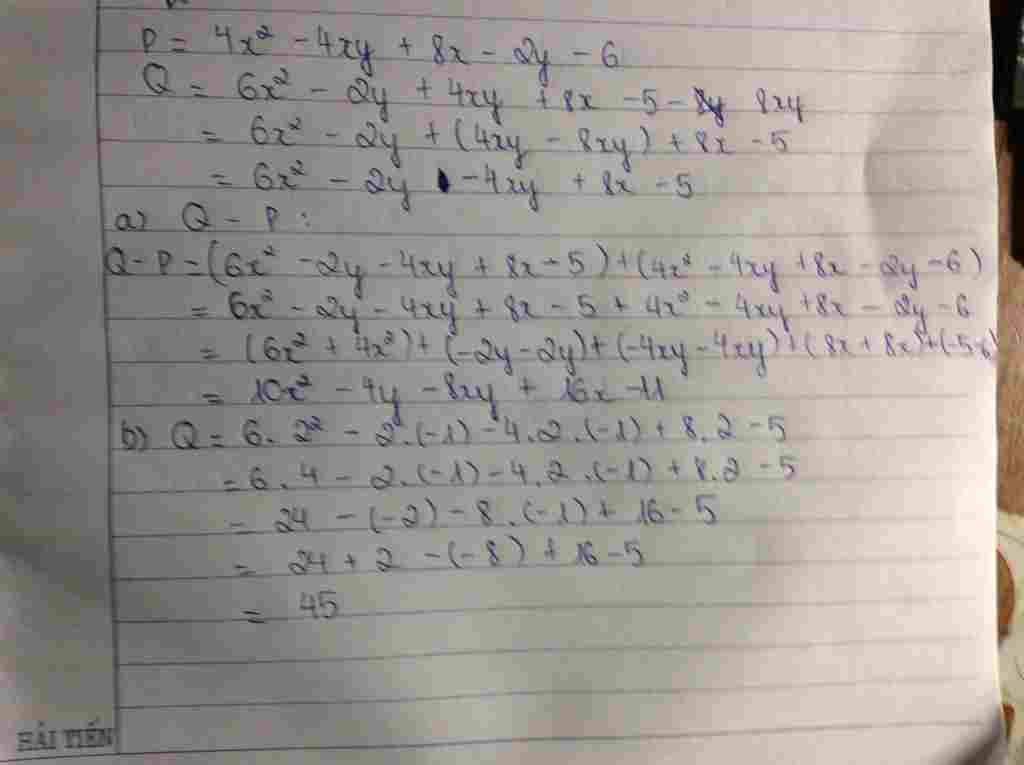 P = 4x² - 4xy + 8x - 2y - 6
Q = 6x² - 2y + 4xy + 8x - 5 - 8xy
= 6x² - 2y + (4xy - 8xy) + 8x - 5
= 6x² - 2y - 4xy + 8x - 5
a) Q - P :
Q - P = (6x² - 2y - 4xy + 8x - 5) + (4x² - 4xy + 8x - 2y - 6)
= 6x² - 2y - 4xy + 8x - 5 + 4x² - 4xy + 8x - 2y - 6
= (6x² + 4x²) + (-2y - 2y) + (-4xy - 4xy) + (8x + 8x) + (-5-6)
= 10x² - 4y - 8xy + 16x - 11
b) Q = 6. 2² - 2.(-1) - 4.2.(-1) + 8.2 - 5
= 6.4 - 2.(-1) - 4.2.(-1) + 8.2 - 5
= 24 - (-2) - 8.(-1) + 16 - 5
= 24 + 2 - (-8) + 16 - 5
= 45
HẢI TIẾN